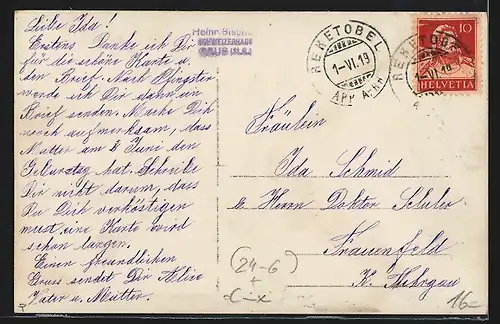 Liebe Ida!
Erstens Danke ich Dir
für die schöne Karte u.
den Brief. Nach Pfingsten
werde ich Dir dann ein
Brief senden. Mache Dich
noch aufmerksam, dass
Mutter am 8 Juni den
Geburtstag hat. Schreibe
Dir nicht darum, dass
Du Dich verköstigen
must, eine Karte wird
schon langen.
Einen freundlichen
Gruss sendet Dir
Vater u. Mutter.
Heinr.
SCHWEIZERHAUS
REHETOBEL
1-VI.19
REHETOBEL
1-VI.19
10
HELVETIA
Fräulein
Ida Schmid
b. Herrn Doktor
Frauenfeld
K. Thurgau
(24-6)
+
16-